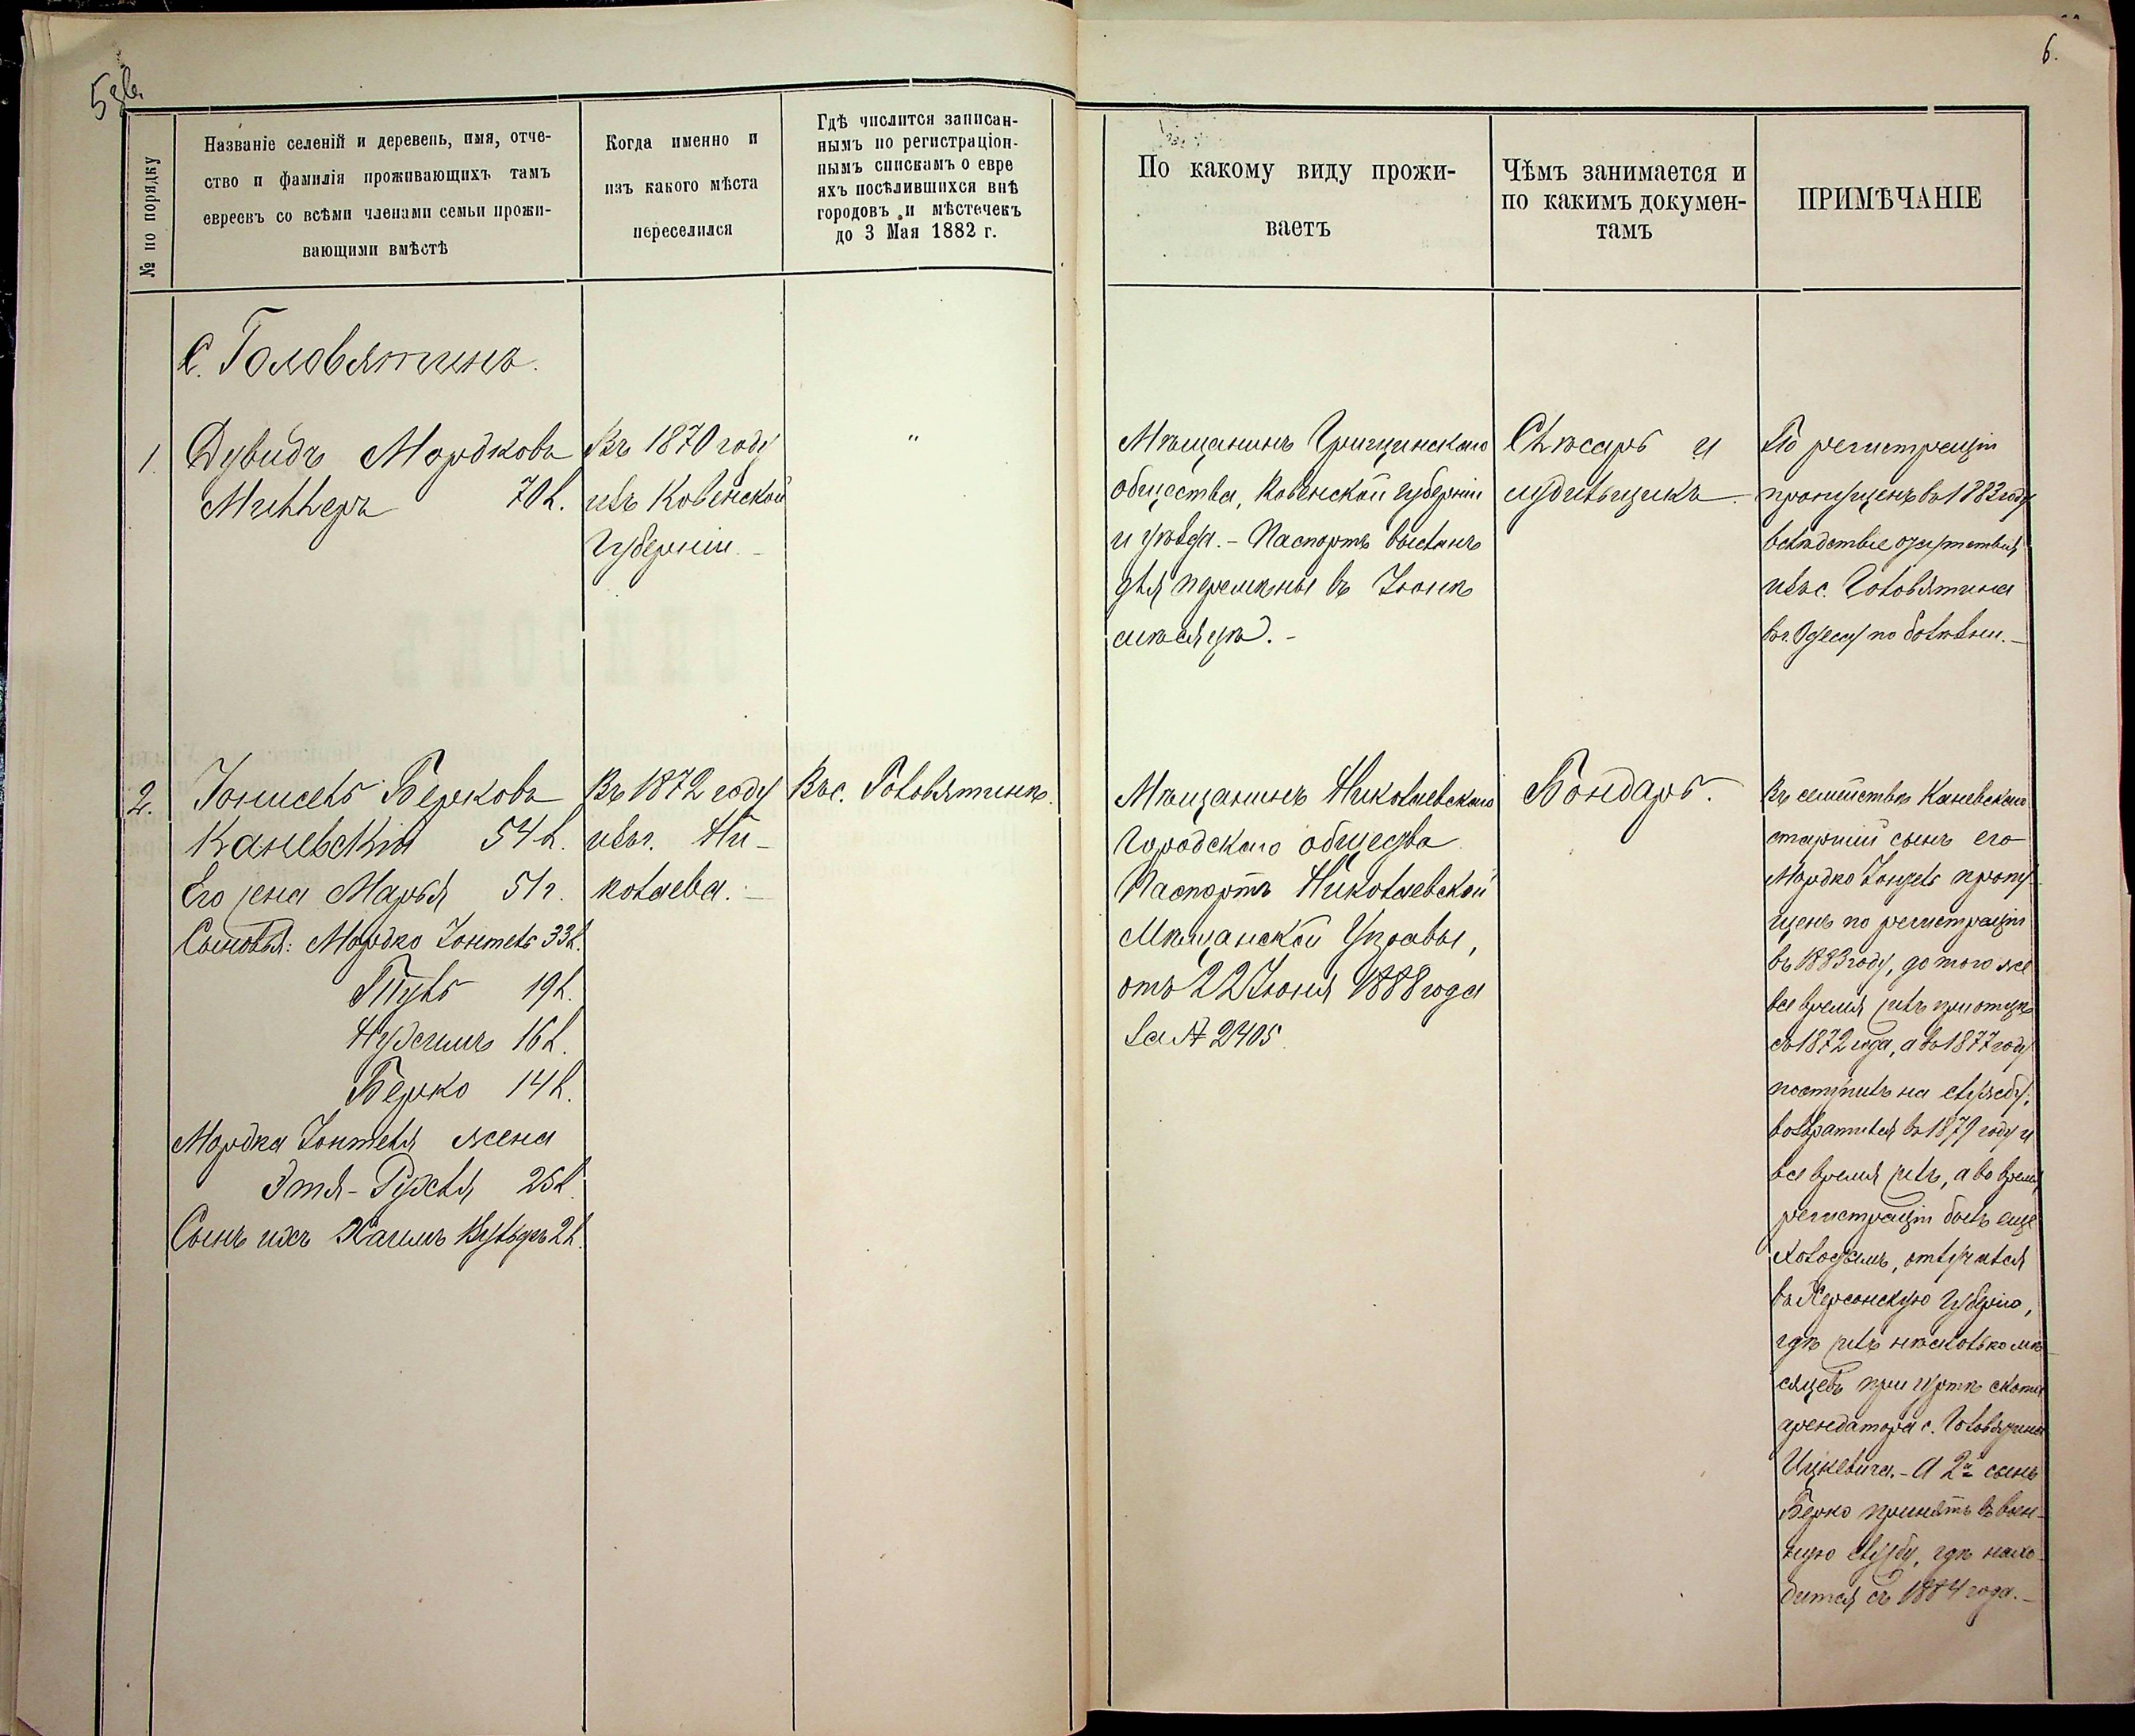 6.
№ по порядку
Названіе селеній и деревень, имя, отче-
ство и фамилія проживающихъ тамъ
евреевъ со всѣми членами семьи прожи-
вающими вмѣстѣ
Когда именно и
изъ какого мѣста
переселился
Гдѣ числится записан-
нымъ по регистраціон-
нымъ спискамъ о евре
яхъ поселившихся внѣ
городовъ и мѣстечекъ
до 3 Мая 1882 г.
По какому виду прожи-
ваетъ
Чѣмъ занимается и
по какимъ докумен-
тамъ
ПРИМѢЧАНІЕ
С. Головятинъ.
1.
Дувидъ Мордковъ
Миллеръ 70 л.
Въ 1870 году
изъ Ковенской
Губерніи. –
"
Мѣщанинъ
общества, Ковенской губерніи
и уѣзда. – Паспортъ высланъ
для перемѣны въ Іюнѣ
мѣсяцѣ. –
Слѣсарь и
лудильщикъ
По регистраціи
пропущенъ въ 1882 году
вслѣдствіе отсутствія
изъ с. Головятина
въ г. Одессу по болѣзни. –
2.
Берковъ
Каневскій 54 л.
Его жена Марья 51 г.
Сыновья: Мордко Іонтель 33 л.
19 л.
16 л.
Берко 14 л.
Мордка Іонтеля жена
Этя-Рухля 25 л.
Сынъ ихъ Хаимъ 2 л.
Въ 1872 году
изъ г. Ни-
колаева. –
Въ с. Головятинѣ.
Мѣщанинъ Николаевскаго
Городскаго общества
Паспортъ Николаевской
Мѣщанской Управы,
отъ 22 Іюня 1888 года
за № 2405.
Бондарь.
Въ семействѣ Каневскаго
старшій сынъ его
Мордко Іонтель пропу-
щенъ по регистраціи
въ 1883 году, до того же
все время жилъ при отцѣ
съ 1872 года, а въ 1877 году
поступилъ на службу;
возвратился въ 1879 году и
все время жилъ, а во время
регистраціи былъ еще
холостымъ, отлучался
въ Херсонскую Губернію,
гдѣ жилъ нѣсколько мѣ-
сяцевъ при гуртѣ скота
арендатора с. Головятина
Ицкевича. – А 2й сынъ
Берко принятъ въ воен-
ную службу, гдѣ нахо-
дится съ 1884 года. –